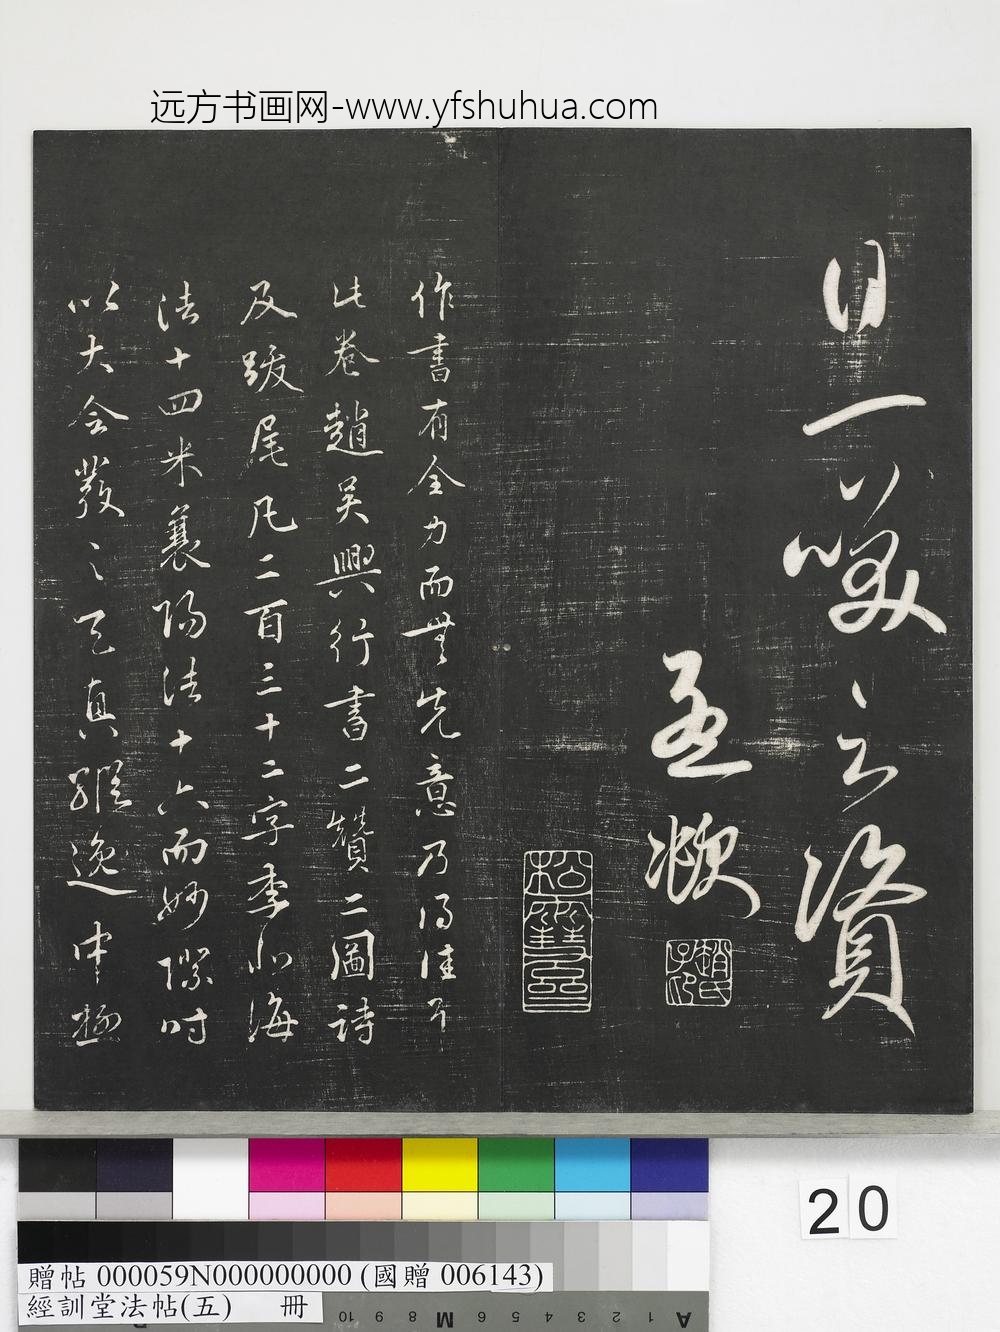 远方书画网-www.yfshuhua.com
日一笑之資
孟頫
趙氏子印
松雪齋
作書有全力而無先意乃得佳耳
此卷趙吴興行書二贊二圖詩
及跋尾凡二百三十二字季北海
法十四米襄陽法十六而妙際時
以大令發之天真縱逸中極
20
贈帖 000059N000000000 (國贈 006143)
經訓堂法帖(五) 冊
10 9 8 M 6 5 4 3 2 1 A